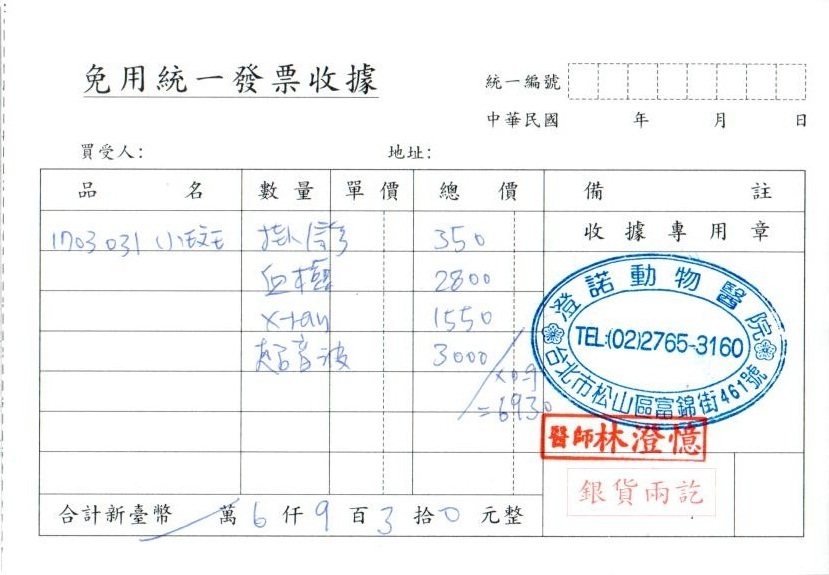 免用統一發票收據
統一編號
中華民國 年 月 日
買受人: 地址:
品 名 數量 單價 總價 備註
收據專用章
1703031 小玟 掛號 350
血檢 2800
x-ray 1550
超音波 3000
x0.9
=6930
澄諾動物醫院
TEL:(02)2765-3160
台北市松山區富錦街461號
醫師林澄憶
銀貨兩訖
合計新臺幣 萬 6 仟 9 百 3 拾 0 元整